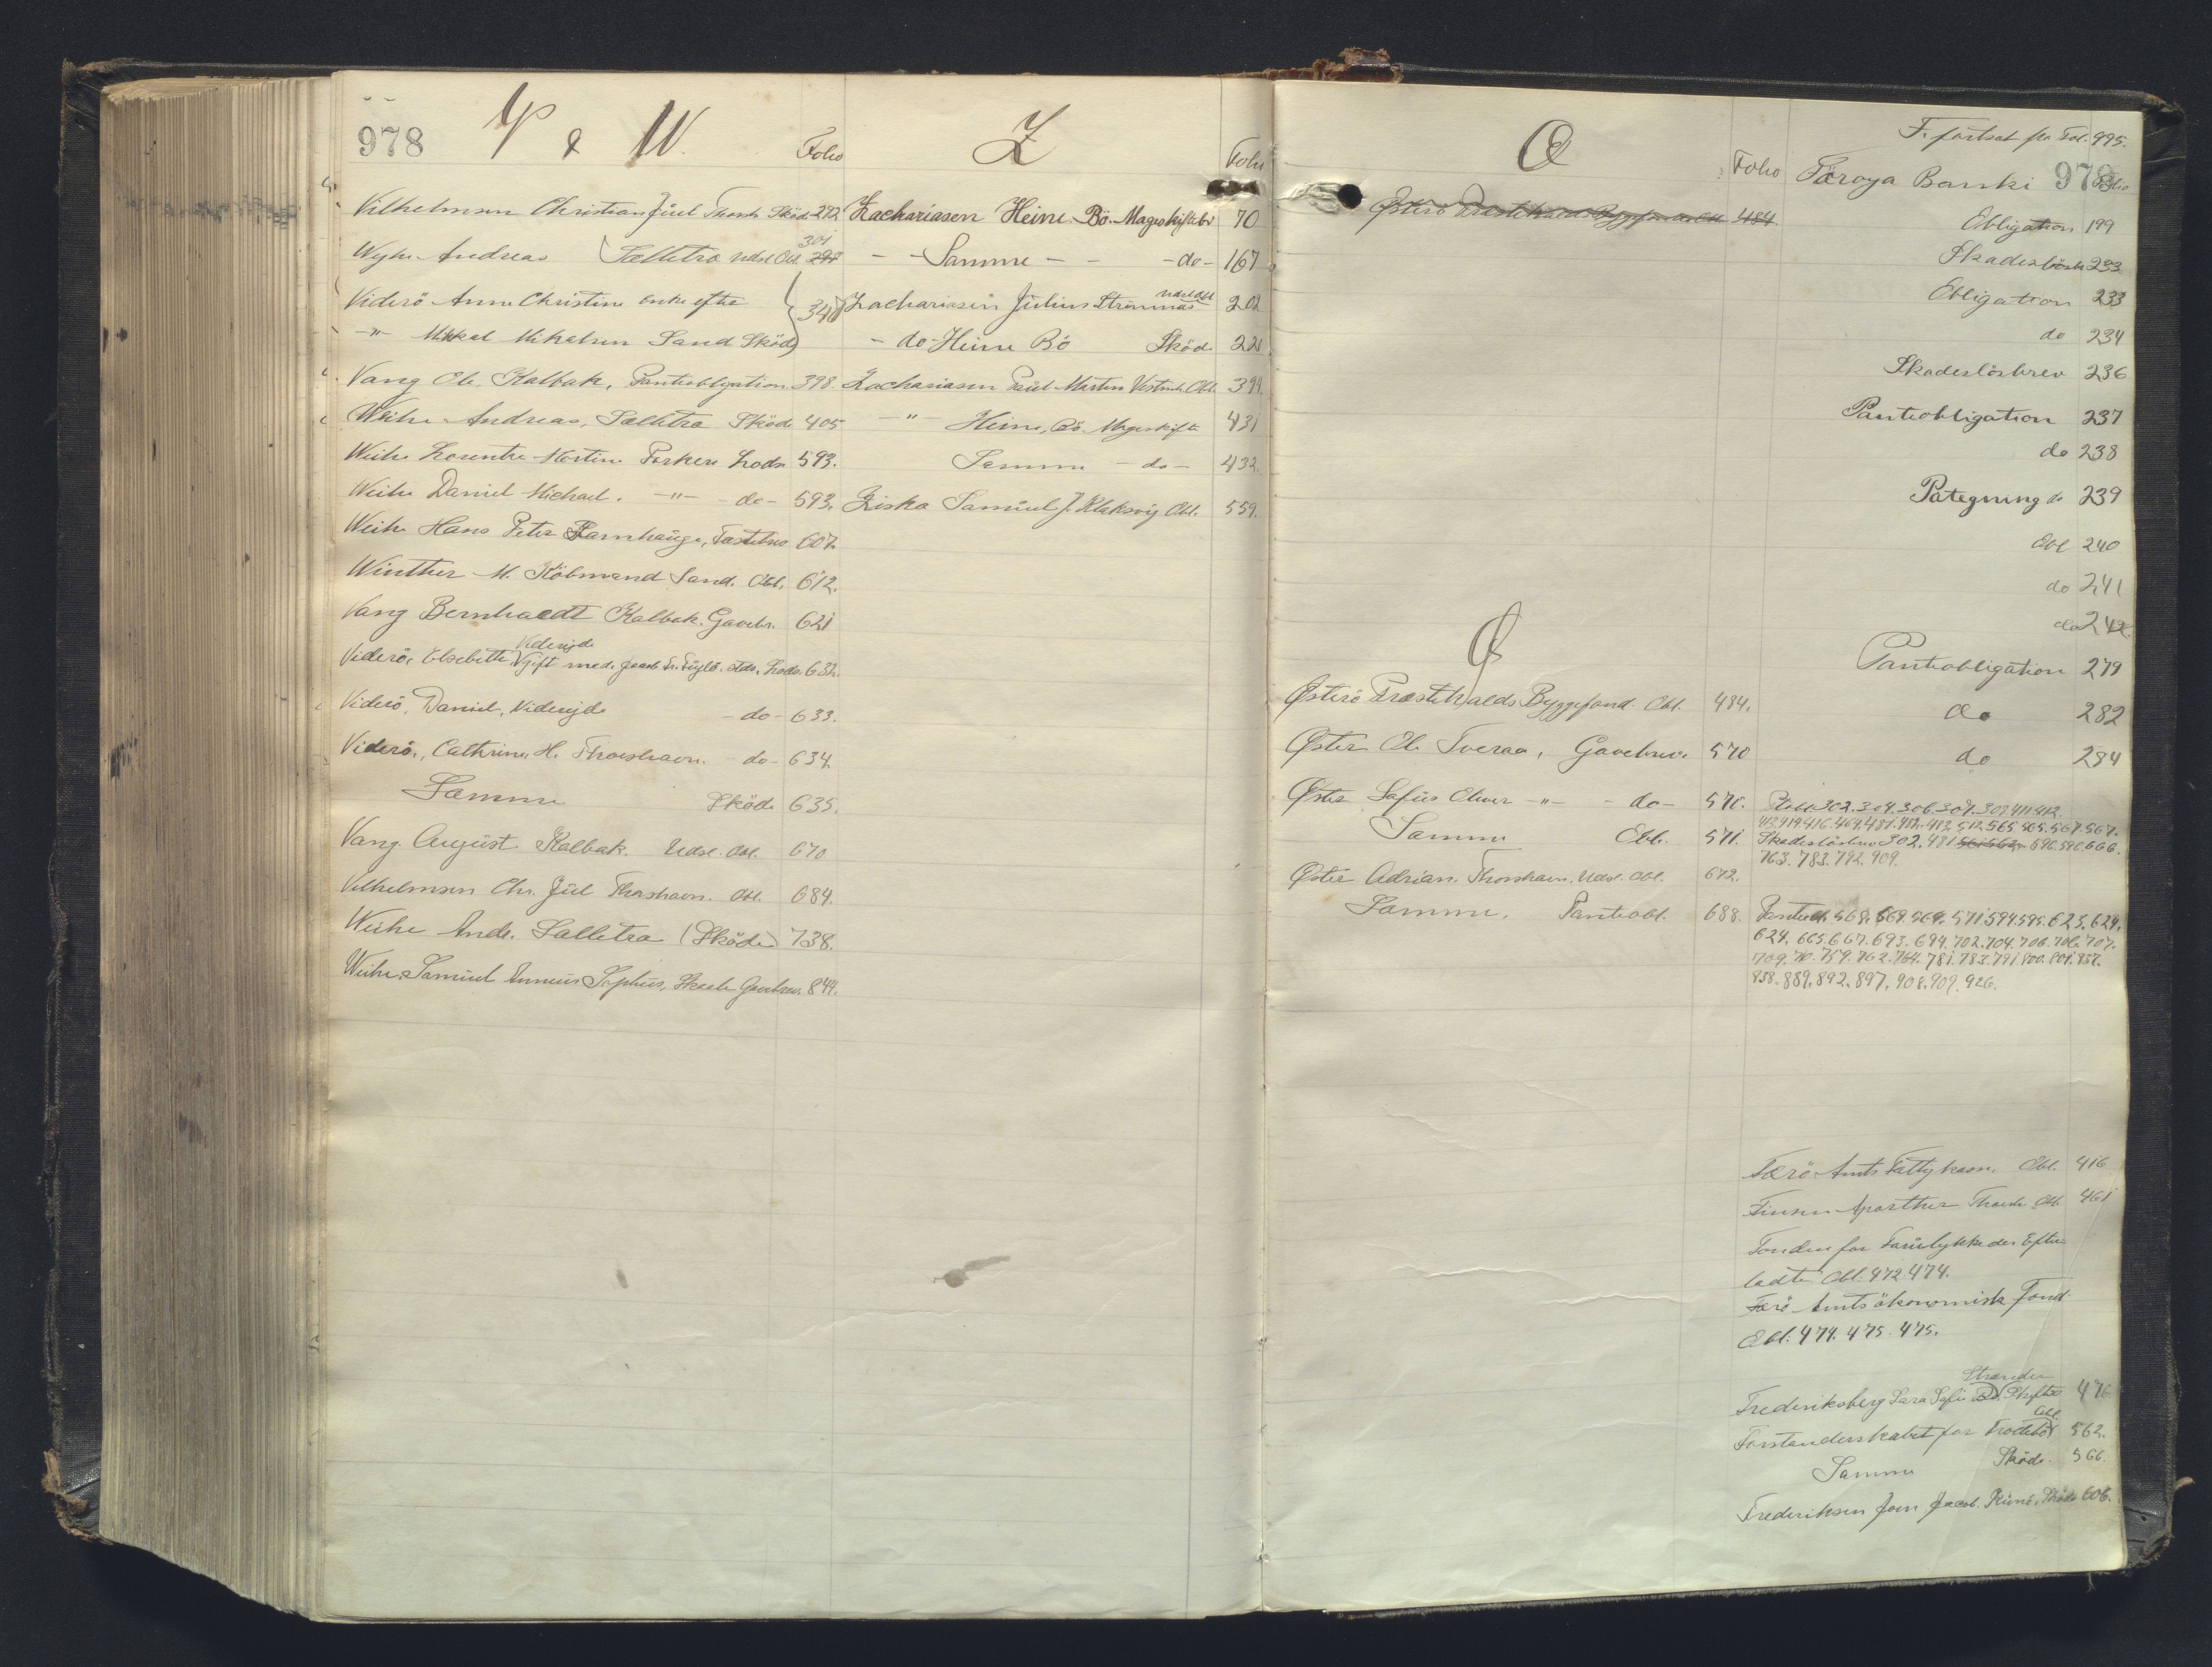 978 V & W. Folio
Vilhelmsen Christian Juul Thorsh. Sköde 292
Weyhe Andreas Selletra Udsl Obl. 301 298
Viderö Anne Christine enke efte
-"- Mikkal Mikalsen Sand Sköde 348
Vang Ole. Kalbak, Panteobligation. 398.
Weihe Andreas, Selletra Sköde 405
Weihe Hosentre Mortine Porkere Lods. 593.
Weihe Daniel Michael. -"- -do- 593.
Weihe Hans Peter Famhauge, Fæstebrev 607.
Winther M. Köbmand Sand. Obl. 612.
Vang Bernhardt Kalbak. Gavebr. 621
Viderejde
Viderö, Elsebeth gift med. Jacob Fr. Fuglö. Lods. 632.
Viderö, Daniel, Viderejde -do- 633.
Viderö, Cathrine H. Thorshavn. -do- 634.
Samme Sköde 635.
Vang. August. Kalbak. Udsl. Obl. 670
Vilhelmsen Chr. Juul Thorshavn. Obl. 684.
Weihe Andr. Selletra (Sköde) 738.
Weihe, Samuel Sophus, Skaale Gavebrev. 844.
Z Folio
Zachariasen Heine Bö. Mageskiftebr 70
- - Samme - - -do- 167
Zachariasen Julius Strömnæs Udsl Obl 202
- do - Heine Bö Sköd. 221
Zachariasen Poul Martin Vestmh. Obl. 399.
-"- Heine, Bö Mageskifte 431
Samme -do- 432.
Ziska Samuel J. Klaksvig Obl. 559.
Æ Folio
Österö Præstekalds Byggefond Obl 484.
Ø
Østerö Præstekalds Byggefond. Obl. 484.
Øster Ole Tveraa, Gavebrev. 570
Øster Safus Oliver -"- -do- 570.
Samme Obl. 571.
Øster Adrian. Thorshavn. Udsl. Obl. 672.
Samme. Panteobl. 688.
F. fortsat fra Fol. 995.
Föroya Banki 979 Folio
Obligation 199
Skadeslösbr 233
Obligation 233
do 234
Skadeslösbrev 236
Panteobligation 237
do 238
Pategning do 239
Obl 240
do 241
do 242.
Panteobligation 279
do 282
do 284
302. 304. 306. 307. 308. 411. 412.
413. 414. 416. 469. 481. 482. 482. 512. 565. 565. 567. 567.
Skadeslösbrev 302. 481 561 562 596. 596. 666.
763. 783. 792. 909.
Panteobl. 568. 569. 569. 571 594 595. 623. 624.
624. 665. 667. 693. 694. 702. 704. 706. 706. 707.
709. 710. 759. 762. 764. 781. 783. 791 800. 801. 837.
838. 889. 892. 897. 908. 909. 926.
Færö Amts Fattigkasse. Obl. 416
Finsen Thorsh. Obl. 461
Fonden for Forulykkedes Efter-
ladte Obl. 472. 474.
Færö Amts ökonomiske Fond
Obl. 474. 475. 475.
Strender
Frederiksberg Sara Sofie Skifte 476
Forstanderskabet for Trödebö Obl. 562.
Samme Sköde. 566.
Frederiksen Joen Jacob. Kunö, Sköde 606.